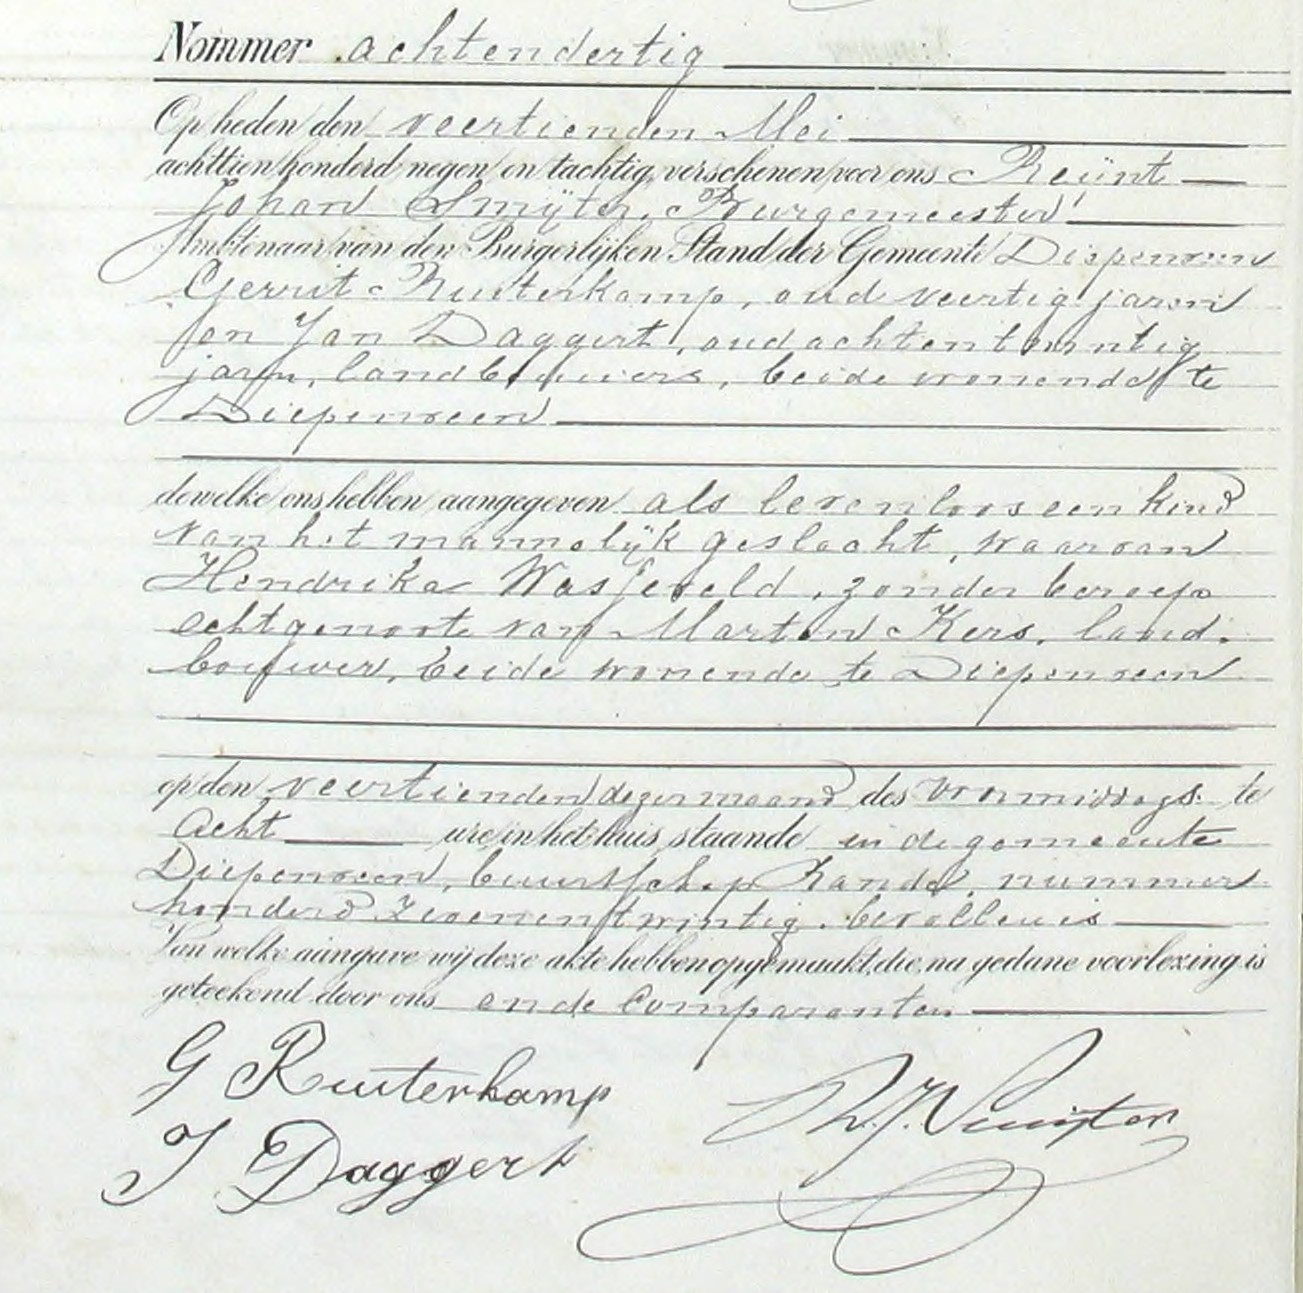 Nommer achtendertig
Op heden den veertienden Mei
achttien honderd negen en tachtig, verschenen voor ons Reünt
Johan Smijter, Burgemeester
Ambtenaar van den Burgerlijken Stand der Gemeente Diepenveen
Gerrit Ruiterkamp, oud veertig jaren
en Jan Daggert, oud achtentwintig
jaren, landbouwers, beide wonende te
Diepenveen
dewelke ons hebben aangegeven als levenloos een kind
van het mannelijk geslacht, waarvan
Hendrika Wasseveld, zonder beroep
echtgenoote van Marten Kers, land-
bouwer, beide wonende te Diepenveen
op den veertienden dezer maand des voormiddags te
acht ure in het huis staande in de gemeente
Diepenveen, buurtschap Rande, nummer
honderd zevenentwintig, bevallen is
Van welke aangave wij deze akte hebben opgemaakt, die, na gedane voorlezing is
geteekend door ons en de comparanten
G Ruiterkamp
J Daggert